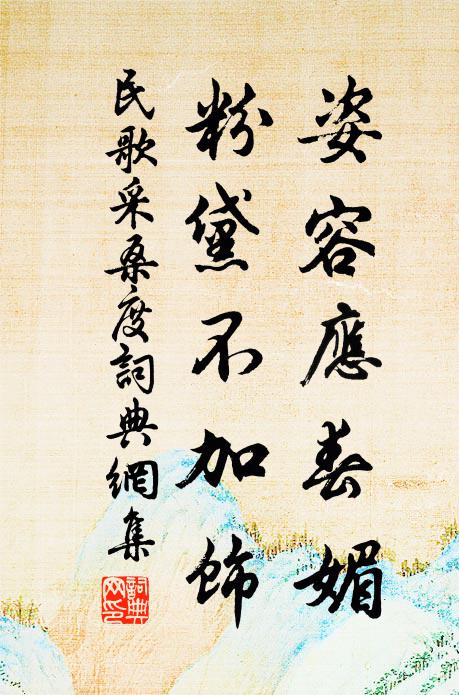 姿容應春媚
粉黛不加飾
民歌采桑度詞典網集
詞典